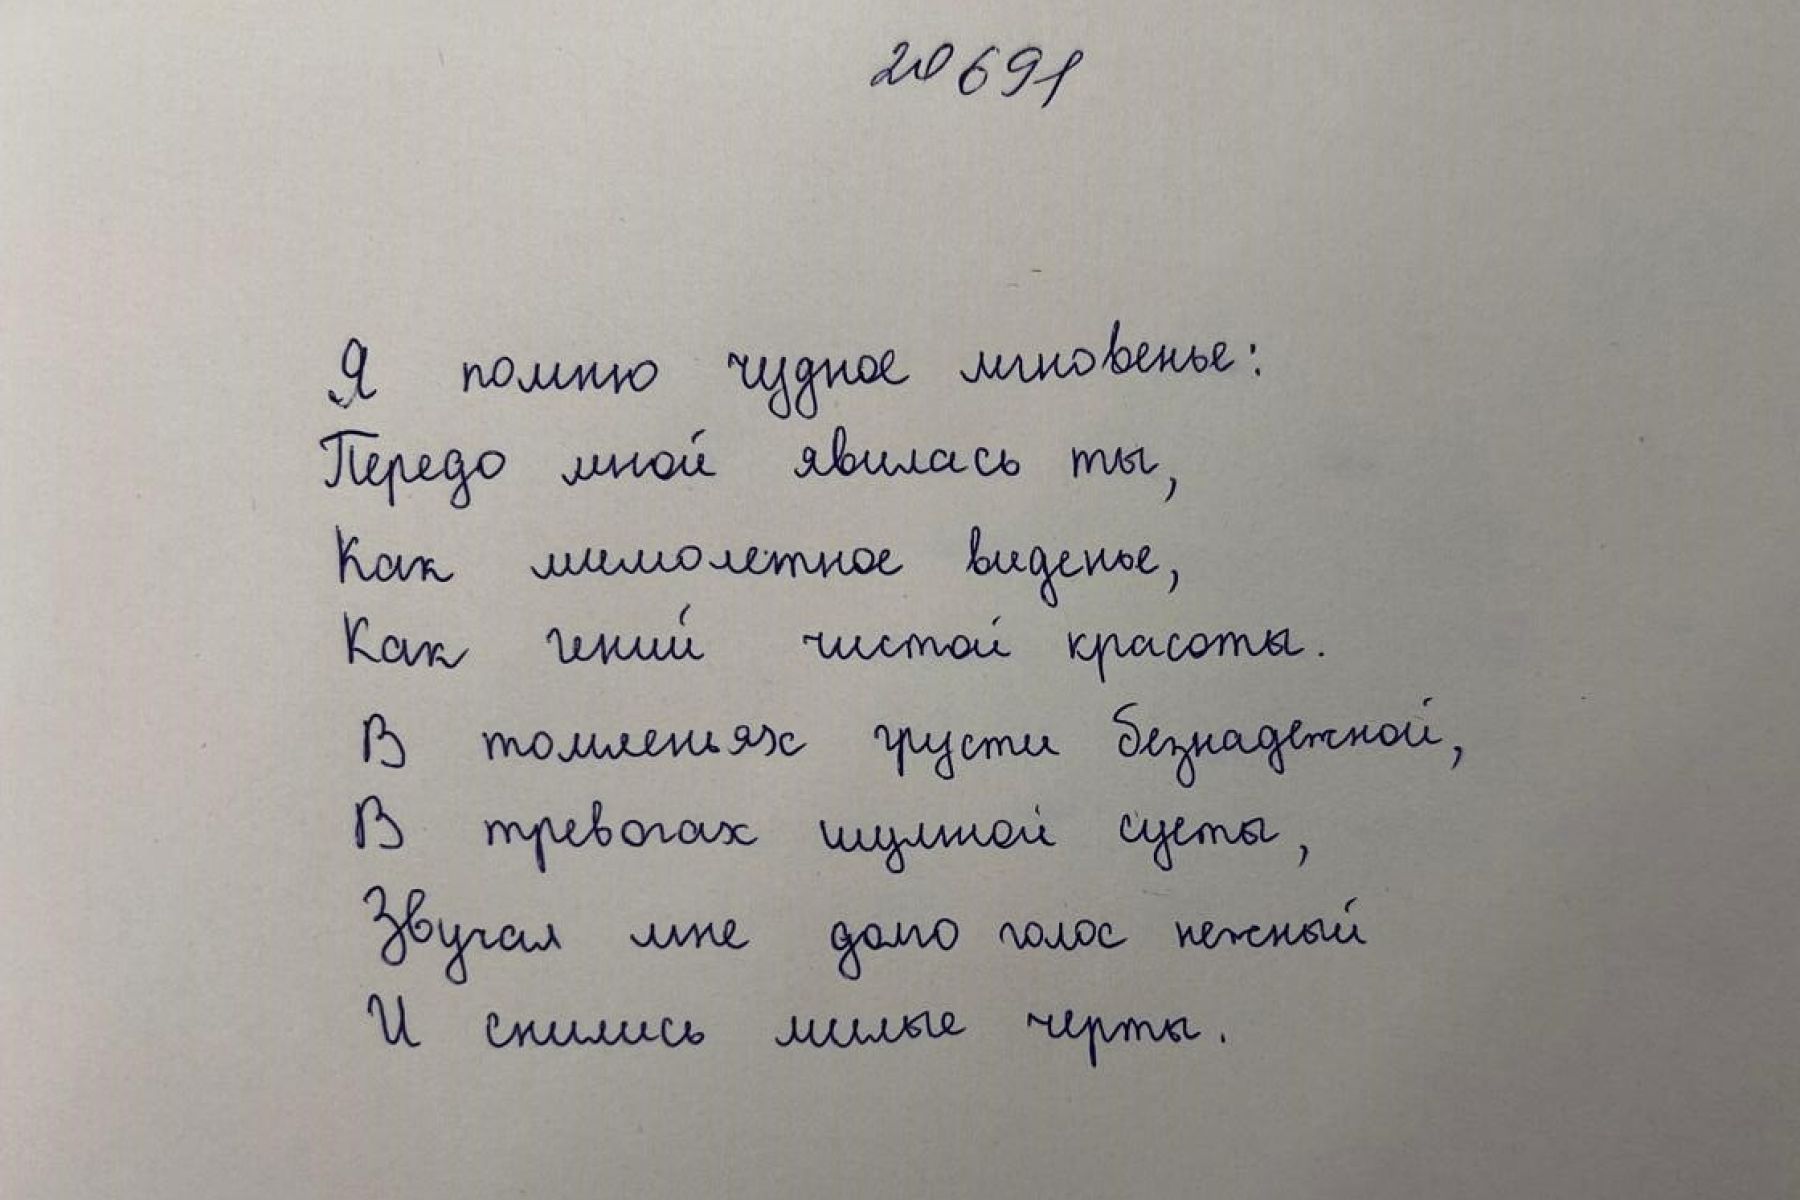 20691
Я помню чудное мгновенье:
Передо мной явилась ты,
Как мимолетное виденье,
Как гений чистой красоты.
В томленьях грусти безнадежной,
В тревогах шумной суеты,
Звучал мне долго голос нежный
И снились милые черты.